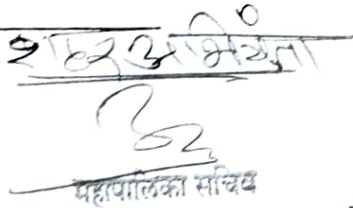 शहर अभियंता
महापालिका सचिव